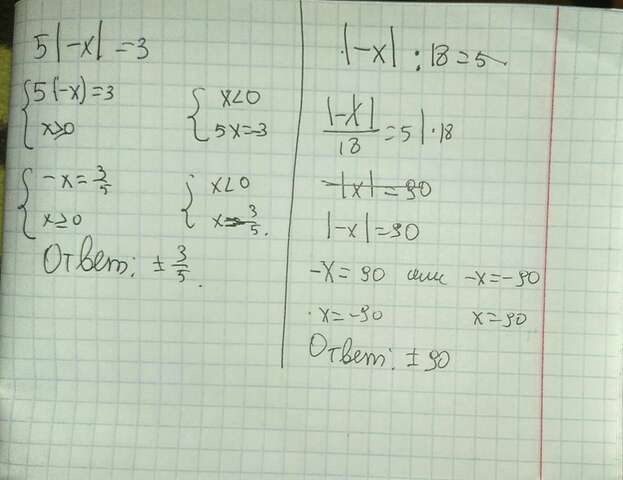 5|-x| = 3
{ 5(-x) = 3
x ≥ 0
{ x < 0
5x = -3
{ -x = 3/5
x ≥ 0
{ x < 0
x = -3/5.
Ответ: ± 3/5.
|-x| : 18 = 5
|-x|/18 = 5 | · 18
-|x| = 90
|-x| = 90
-x = 90 или -x = -90
x = -90 x = 90
Ответ: ± 90